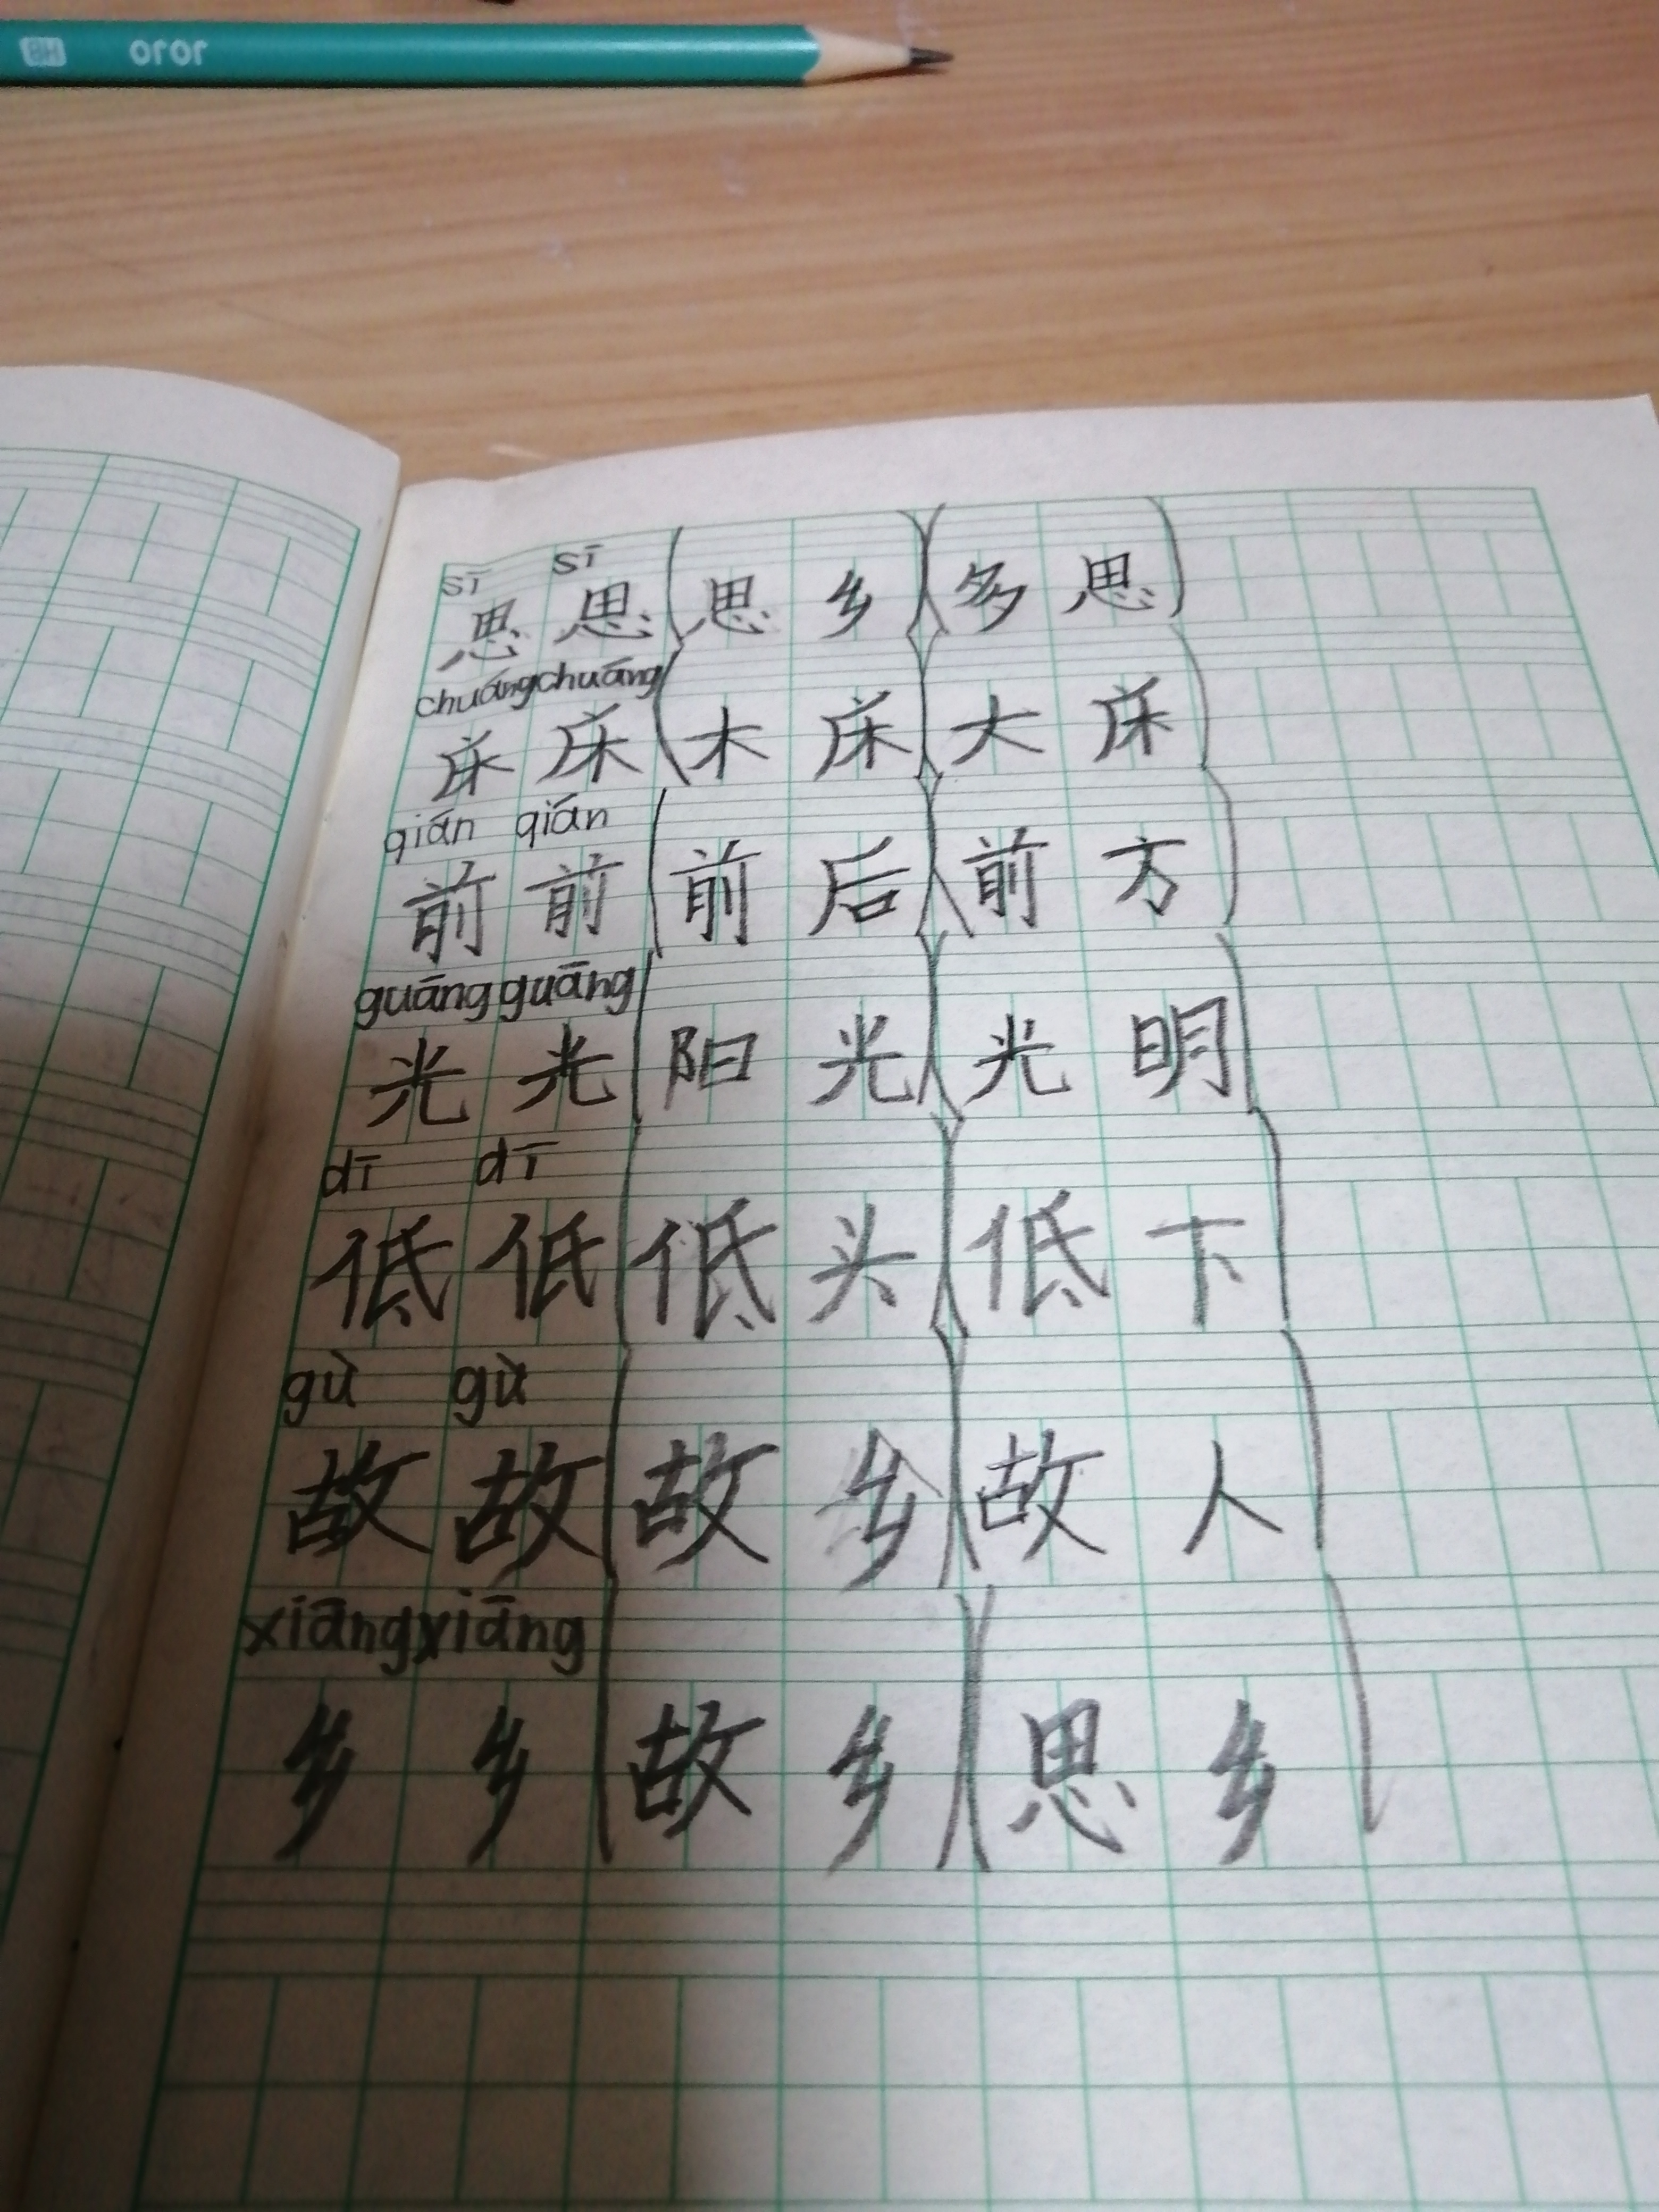 HB 1010
sī sī
思 思 (思 乡) (多 思)
chuáng chuáng
床 床 (木 床) (大 床)
qián qián
前 前 (前 后) (前 方)
guāng guāng
光 光 (阳 光) (光 明)
dī dī
低 低 (低 头) (低 下)
gù gù
故 故 (故 乡) (故 人)
xiāng xiāng
乡 乡 (故 乡) (思 乡)